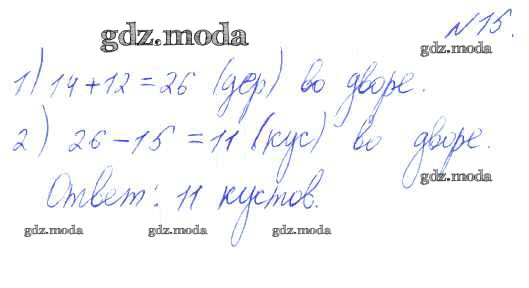 №15.
gdz.moda
gdz.moda
1) 14+12=26 (дер) во дворе.
2) 26-15=11 (кус) во дворе.
gdz.moda
Ответ: 11 кустов.
gdz.moda gdz.moda gdz.moda